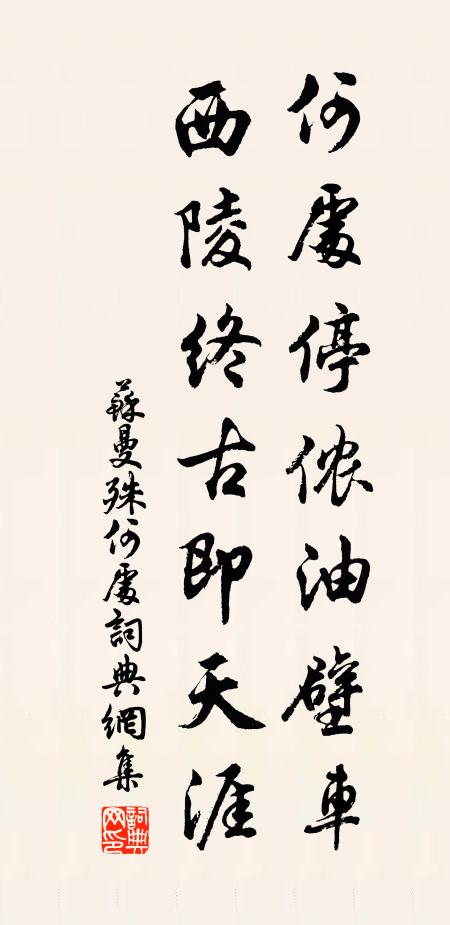 何處停侬油壁車
西陵終古即天涯
蘇曼殊何處詞典網集
詞典網印